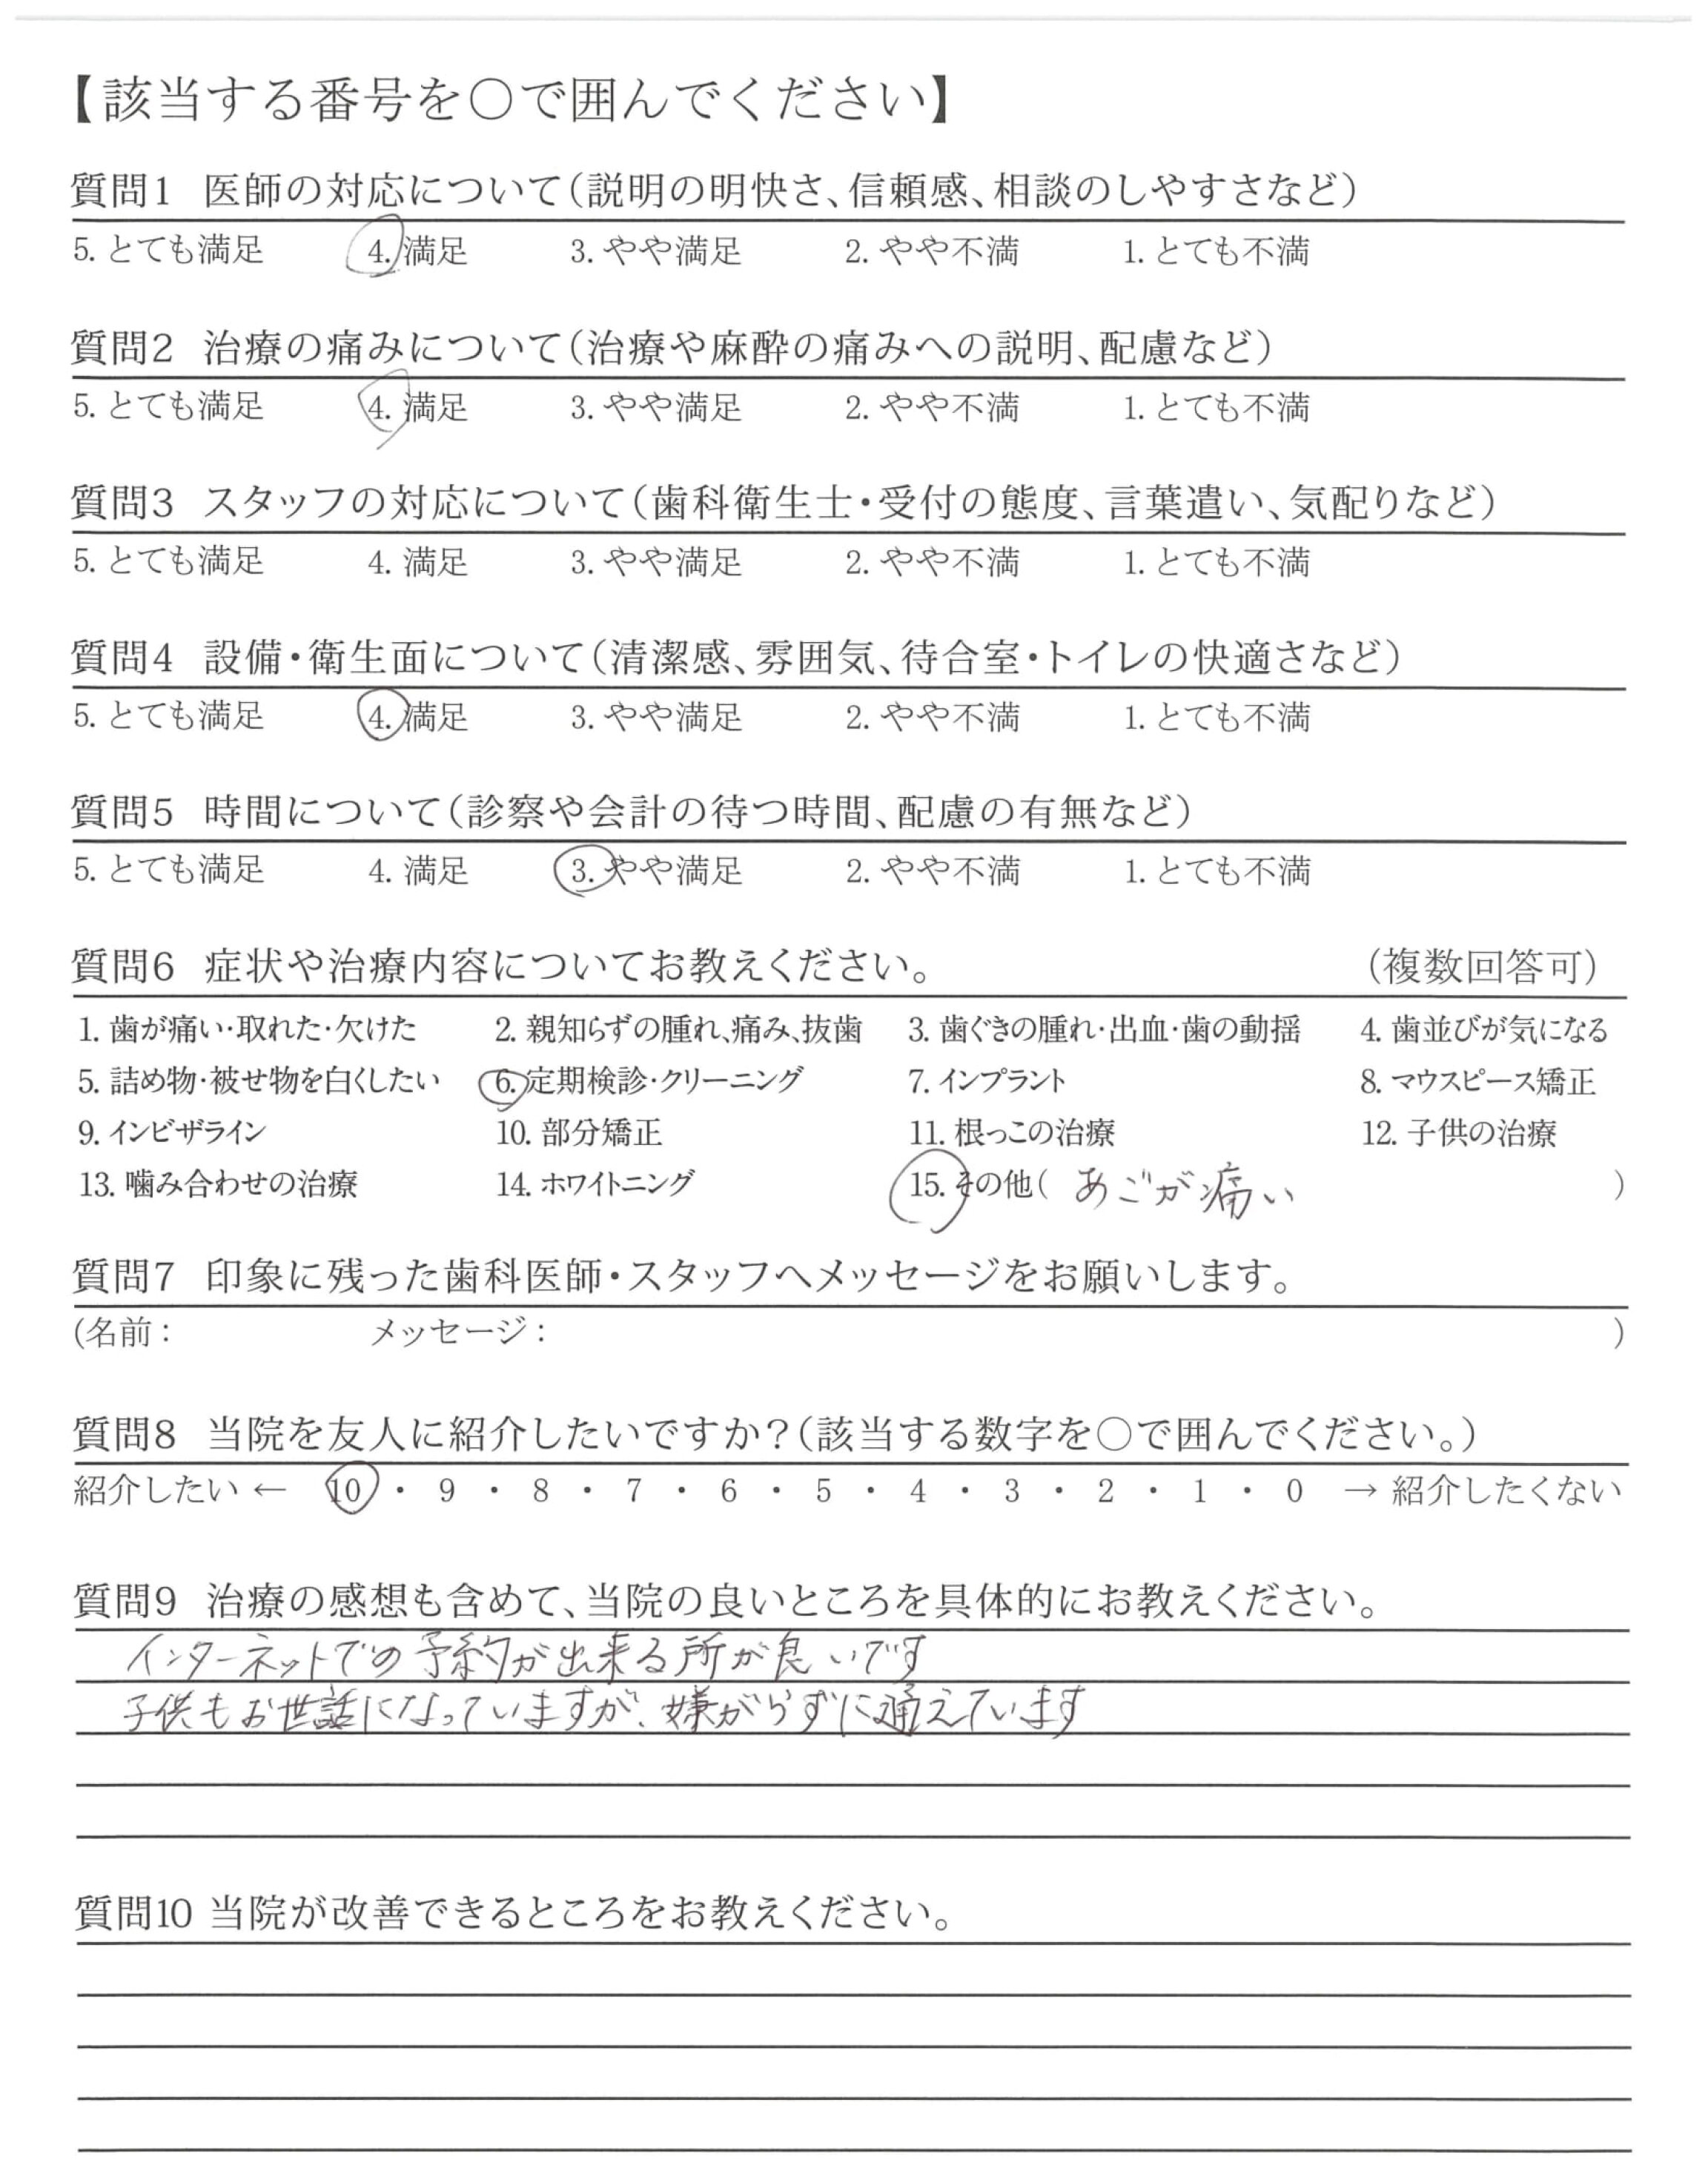 【該当する番号を○で囲んでください】
質問1 医師の対応について(説明の明快さ、信頼感、相談のしやすさなど)
5. とても満足 4. 満足 3. やや満足 2. やや不満 1. とても不満
質問2 治療の痛みについて(治療や麻酔の痛みへの説明、配慮など)
5. とても満足 4. 満足 3. やや満足 2. やや不満 1. とても不満
質問3 スタッフの対応について(歯科衛生士・受付の態度、言葉遣い、気配りなど)
5. とても満足 4. 満足 3. やや満足 2. やや不満 1. とても不満
質問4 設備・衛生面について(清潔感、雰囲気、待合室・トイレの快適さなど)
5. とても満足 4. 満足 3. やや満足 2. やや不満 1. とても不満
質問5 時間について(診察や会計の待つ時間、配慮の有無など)
5. とても満足 4. 満足 3. やや満足 2. やや不満 1. とても不満
質問6 症状や治療内容についてお教えください。 (複数回答可)
1. 歯が痛い・取れた・欠けた 2. 親知らずの腫れ、痛み、抜歯 3. 歯ぐきの腫れ・出血・歯の動揺 4. 歯並びが気になる
5. 詰め物・被せ物を白くしたい 6. 定期検診・クリーニング 7. インプラント 8. マウスピース矯正
9. インビザライン 10. 部分矯正 11. 根っこの治療 12. 子供の治療
13. 噛み合わせの治療 14. ホワイトニング 15. その他( あごが痛い )
質問7 印象に残った歯科医師・スタッフへメッセージをお願いします。
(名前： メッセージ： )
質問8 当院を友人に紹介したいですか？(該当する数字を○で囲んでください。)
紹介したい ← 10 ・ 9 ・ 8 ・ 7 ・ 6 ・ 5 ・ 4 ・ 3 ・ 2 ・ 1 ・ 0 → 紹介したくない
質問9 治療の感想も含めて、当院の良いところを具体的にお教えください。
インターネットでの予約が出来る所が良いです
子供もお世話になっていますが、嫌がらずに通えています
質問10 当院が改善できるところをお教えください。